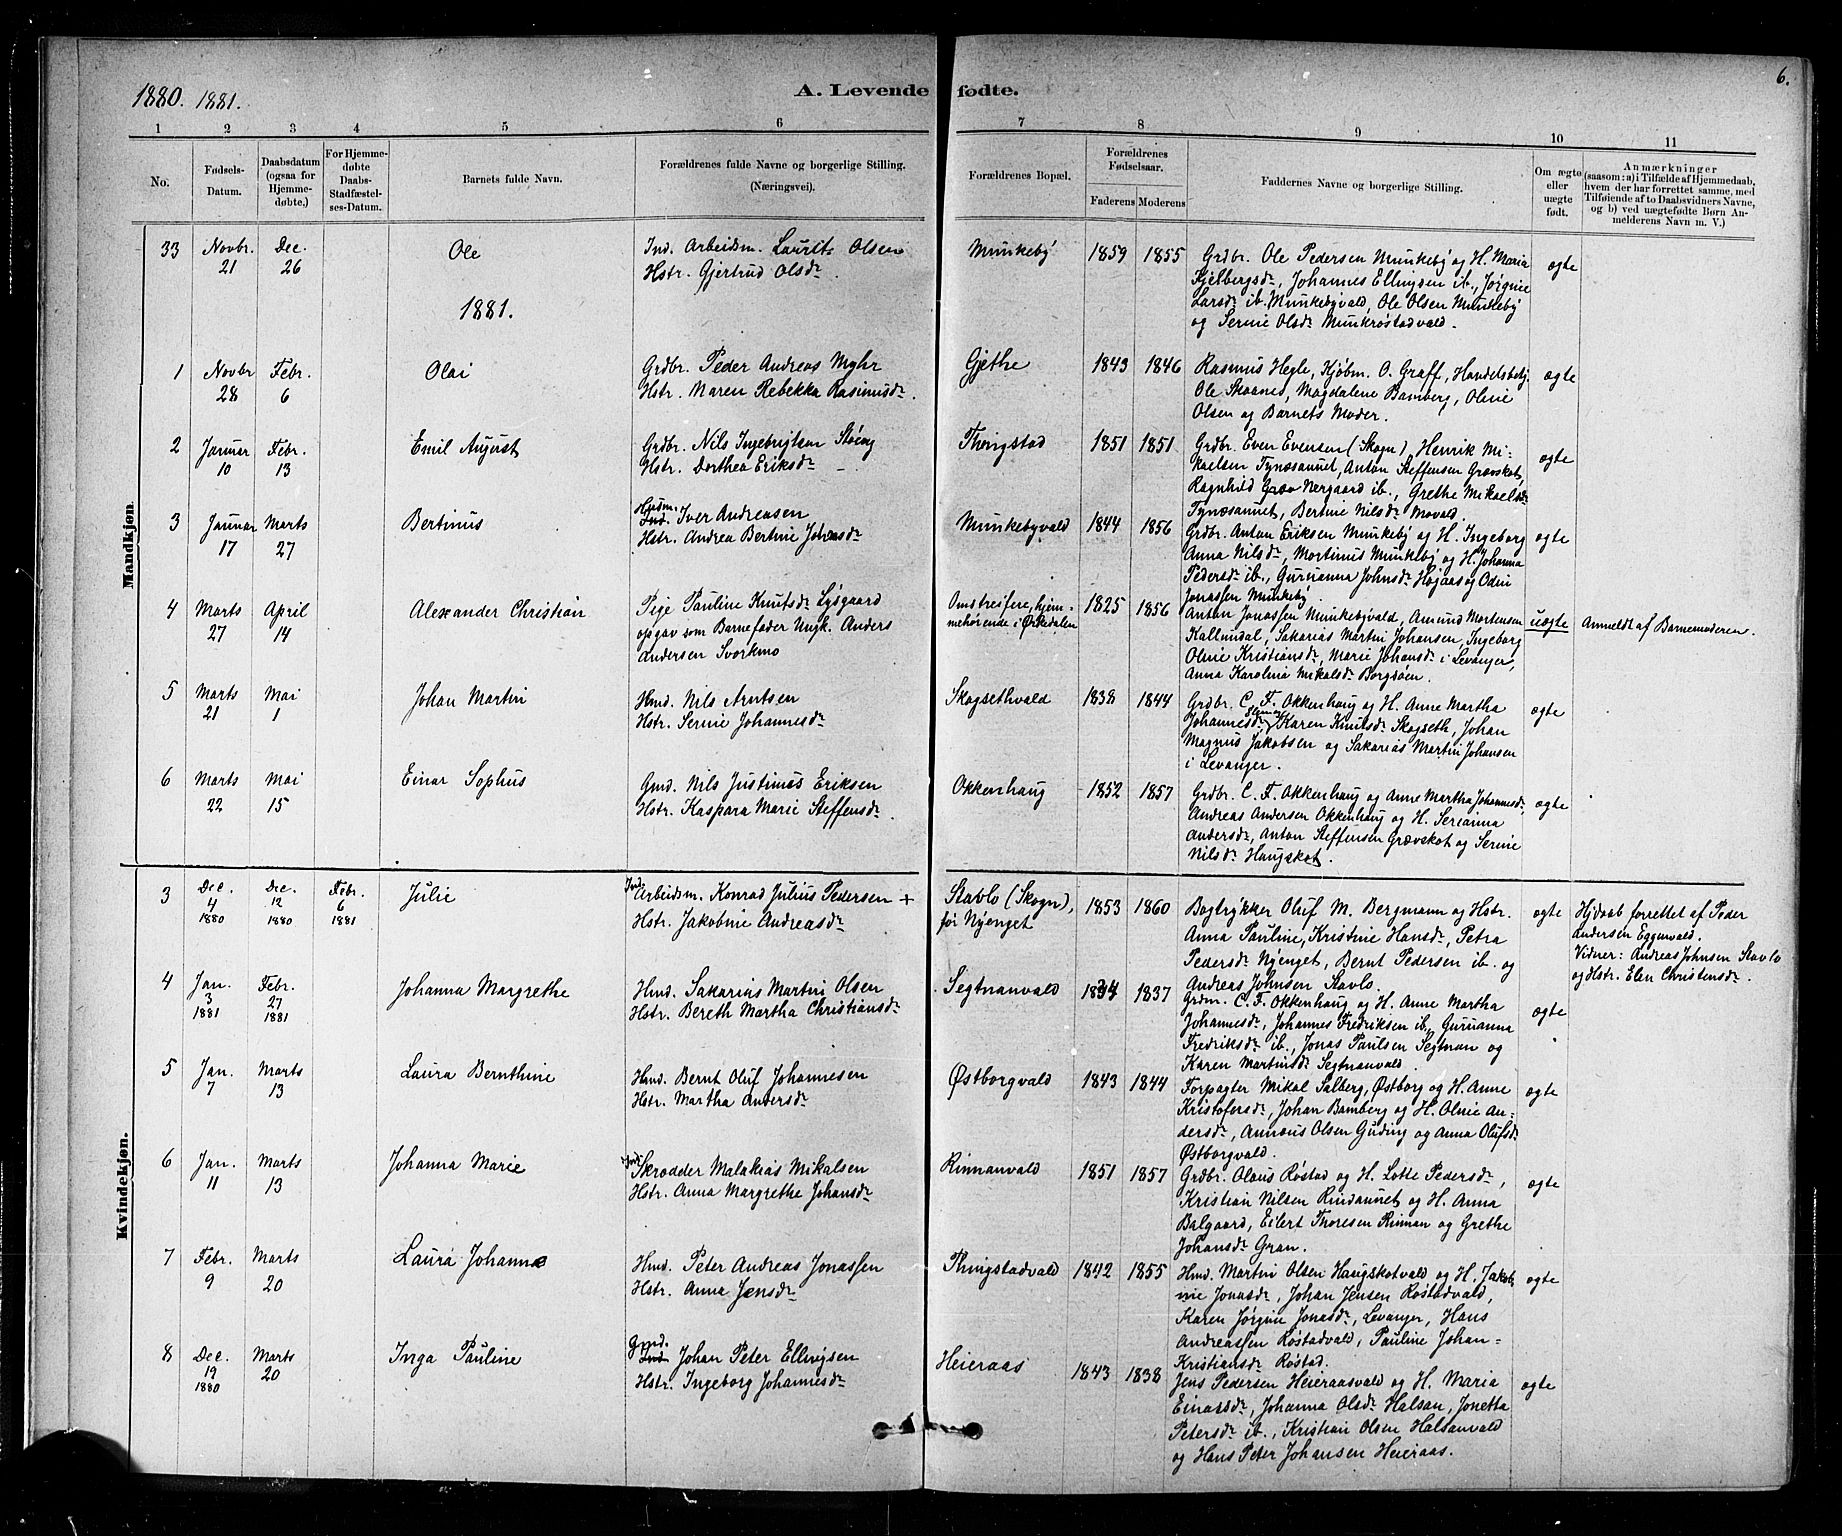 1880. 1881.
A. Levende fødte.
6.
1 2 3 4 5 6 7 8 9 10 11
No.
Fødsels-
Datum.
Daabsdatum
(ogsaa for
Hjemme-
døbte.)
For Hjemme-
døbte
Daabs-
Stadfæstel-
ses-Datum.
Barnets fulde Navn.
Forældrenes fulde Navne og borgerlige Stilling.
(Næringsvei).
Forældrenes Bopæl.
Forældrenes
Fødselsaar.
Faderens Moderens
Faddernes Navne og borgerlige Stilling.
Om ægte
eller
uægte
født.
Anmærkninger
(saasom: a) i Tilfælde af Hjemmedaab,
hvem der har forrettet samme, med
Tilføiende af to Daabsvidners Navne,
og b) ved uægtefødte Børn An-
melderens Navn m. V.)
Mandkjøn.
33 Novbr. 21 Dec. 26 Ole
Ind. Arbeidsm. Laurit Olsen
Hstr. Gjertrud Olsdr
Munkeby 1859 1855
Grdbr. Ole Pedersen Munkeby og H. Maria
Kjelbergsdr, Johannes Ellingsen ib., Jørgine
Larsdr ib. Munkebyvald, Ole Olsen Munkeby
og Serine Olsdr Munkrøstadvald.
ægte
1881.
1 Novbr 28 Febr. 6 Olai
Grdbr. Peder Andreas Myhr
Hstr. Maren Rebekka Rasmusdr.
Gjethe 1843 1846
Rasmus Hegle, Kjøbm. O. Graff, Handelsbetj.
Ole Skaaned, Magdalene Bamberg, Oline
Olsen og Barnets Moder.
ægte
2 Januar 10 Febr. 13 Emil August
Grdbr. Nils Ingebrigtsen Støvig
Hstr. Dorthea Eriksdr –
Thingstad 1851 1851
Grdbr. Even Evensen (i Skogn), Henrik Mi-
kaelsen Tynæsaunet, Anton Steffensen Grævskot,
Ragnhild Græv Nergaard ib., Grethe Mikaelsdr
Tynæsaunet, Bertine Nilsdr Movald.
ægte
3 Januar 17 Marts 27 Bertinus
Husm.
Ind. Iver Andreasen
Hstr. Andrea Bertine Johansdr
Munkebyvald 1844 1856
Grdbr. Anton Eriksen Munkeby og H. Ingeborg
Anna Nilsdr, Martinus Munkeby og H. Johanna
Pedersdr ib., Gurianna Johnsdr Højaas og Odin
Jonassen Munkeby.
ægte
4 Marts 27 April 14 Alexander Christian
Pige Pauline Knutsdr Lysgaard
opgav som Barnefader Ungk. Anders
Andersen Svorkmo
Omstreifere, hjem-
mehørende i Ørkedalen 1825 1856
Anton Jonassen Munkebyvald, Amund Mortensen
Kallundal, Sakarias Martin Johansen, Ingeborg
Oline Kristiansdr, Marie Johansdr i Levanger,
Anna Karolina Mikalsdr Borgsøen.
uægte Anmeldt af Barnemoderen.
5 Marts 21 Mai 1 Johan Martin
Hmd. Nils Arntsen
Hstr. Serine Johannesdr
Skogsethvald 1838 1844
Grdbr. C. F. Okkenhaug og H. Anne Martha
Johannesdr, Karen Knutsdr Skogseth, Johan
Magnus Jakobsen og Sakarias Martin Johansen
i Levanger.
ægte
6 Marts 22 Mai 15 Einar Sophus
Gmd. Nils Justinus Eriksen
Hstr. Kaspara Marie Steffensdr.
Okkenhaug 1852 1857
Grdbr. C. F. Okkenhaug og Anne Martha Johannesdr,
Andreas Andersen Okkenhaug og H. Serianna
Andersdr, Anton Steffensen Grævskot og Serine
Nilsdr Haugskot.
ægte
Kvindekjøn.
3 Dec. 4 1880 Dec. 12 1880 Febr. 6 1881 Julie
Ind. Arbeidsm. Konrad Julius Pedersen +
Hstr. Jakobine Andreasdr
Stavlo (Skogn),
før Nyenget 1853 1860
Bogtrykker Oluf M. Bergmann og Hstr.
Anna Pauline, Kristine Hansdr, Petra
Pedersdr Nyenget, Bernt Pedersen ib. og
Andreas Johnsen Stavlo.
ægte
Hjdaab forrettet af Peder
Andersen Eggenvald.
Vidner: Andreas Johnsen Stavlo
og Hstr. Elen Christensdr.
4 Jan. 3 1881 Febr. 27 1881 Johanna Margrethe
Hmd. Sakarias Martin Olsen
Hstr. Bereth Martha Christiansdr
Segtnanvald 1834 1837
Grdm. C. F. Okkenhaug og H. Anne Martha
Johannesdr, Johannes Fredriksen ib., Gurianna
Fredriksdr ib., Jonas Paulsen Segtnan og
Karen Martinsdr Segtnanvald.
ægte
5 Jan. 7 Marts 13 Laura Bernthine
Hmd. Bernt Oluf Johannesen
Hstr. Martha Andersdr
Østborgvald 1843 1844
Forpagter Mikal Salberg, Østborg og H. Anne
Kristofersdr, Johan Bamberg og H. Oline An-
dersdr, Annæus Olsen Guding og Anna Olufsdr
Østborgvald.
ægte
6 Jan. 11 Marts 13 Johanna Marie
Ind. Skrædder Malakias Mikalsen
Hstr. Anna Margrethe Johansdr
Rinnanvald 1851 1857
Grdbr. Olaus Røstad og H. Lotte Pedersdr,
Kristian Nilsen Rindaunet og H. Anna
Balgaard, Eilert Thoresen Rinnan og Grethe
Johansdr Gran.
ægte
7 Febr. 9 Marts 20 Laura Johanna
Hmd. Peter Andreas Jonassen
Hstr. Anna Jensdr
Thingstadvald 1842 1855
Hmd. Martin Olsen Haugskotvald og H. Jakob-
ine Jonasdr, Johan Jensen Røstadvald,
Karen Jørgine Jonasdr, Levanger, Hans
Andreassen Røstadvald, Pauline Johan-
Kristiansdr Røstad.
ægte
8 Dec. 19 1880 Marts 20 Inga Pauline
Gmd.
Ind. Johan Peter Ellingsen
Hstr. Ingeborg Johannesdr
Heieraas 1843 1838
Jens Pedersen Heieraasvald og H. Maria
Einarsdr, Johanna Olsdr Halsan, Jonetta
Petersdr ib., Kristian Olsen Halsanvald
og Hans Peter Johansen Heieraas.
ægte